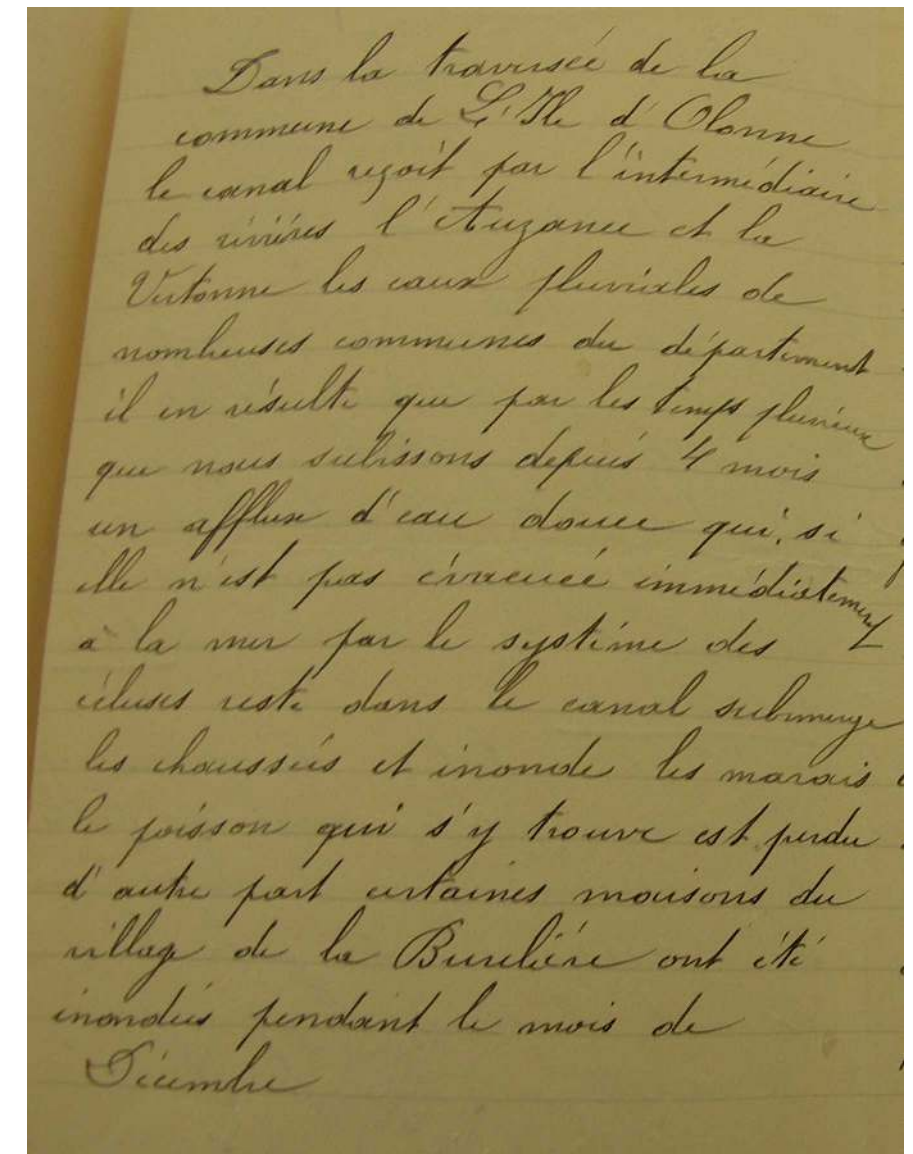 Dans la traversée de la
commune de L'Ile d'Olonne
le canal reçoit par l'intermédiaire
des rivières l'Auzance et la
Vertonne les eaux pluviales de
nombeuses communes du département
il en résulte que par les temps pluvieux
que nous subissons depuis 4 mois
un afflux d'eau douce qui, si
elle n'est pas évacuée immédiatement
à la mer par le système des
écluses reste dans le canal submerge
les chaussées et inonde les marais
le poisson qui s'y trouve est perdu
d'autre part certaines maisons du
village de la Burelière ont été
inondées pendant le mois de
Décembre